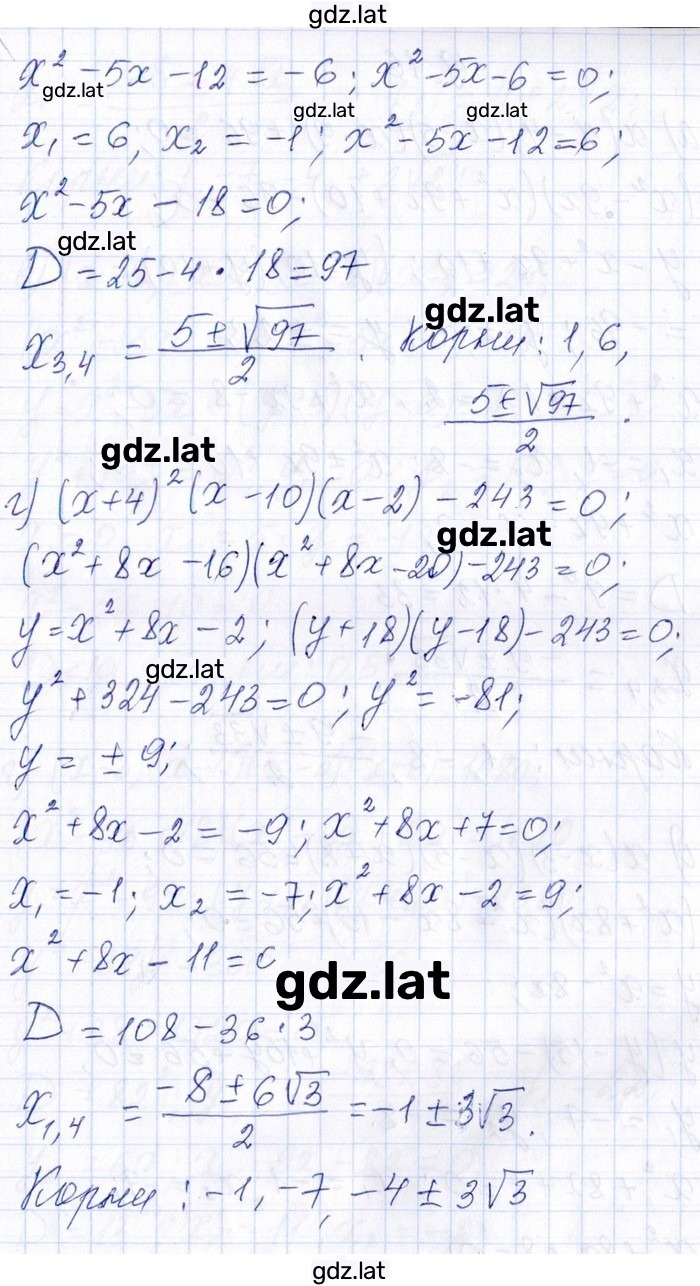 gdz.lat
x² - 5x - 12 = -6; x² - 5x - 6 = 0;
gdz.lat
gdz.lat gdz.lat
x₁ = 6, x₂ = -1; x² - 5x - 12 = 6;
x² - 5x - 18 = 0;
gdz.lat
D = 25 - 4 · 18 = 97
gdz.lat
x₃,₄ = (5 ± √97)/2 . Корни: 1, 6,
(5 ± √97)/2 .
gdz.lat
г) (x+4)² (x - 10)(x - 2) - 243 = 0;
gdz.lat
(x² + 8x - 16)(x² + 8x - 20) - 243 = 0;
y = x² + 8x - 2; (y + 18)(y - 18) - 243 = 0;
gdz.lat
y² + 324 - 243 = 0; y² = -81;
y = ± 9;
x² + 8x - 2 = -9; x² + 8x + 7 = 0;
x₁ = -1; x₂ = -7; x² + 8x - 2 = 9;
x² + 8x - 11 = 0
gdz.lat
D = 108 - 36 · 3
x₁,₄ = (-8 ± 6√3)/2 = -1 ± 3√3.
Корни: -1, -7, -4 ± 3√3
gdz.lat